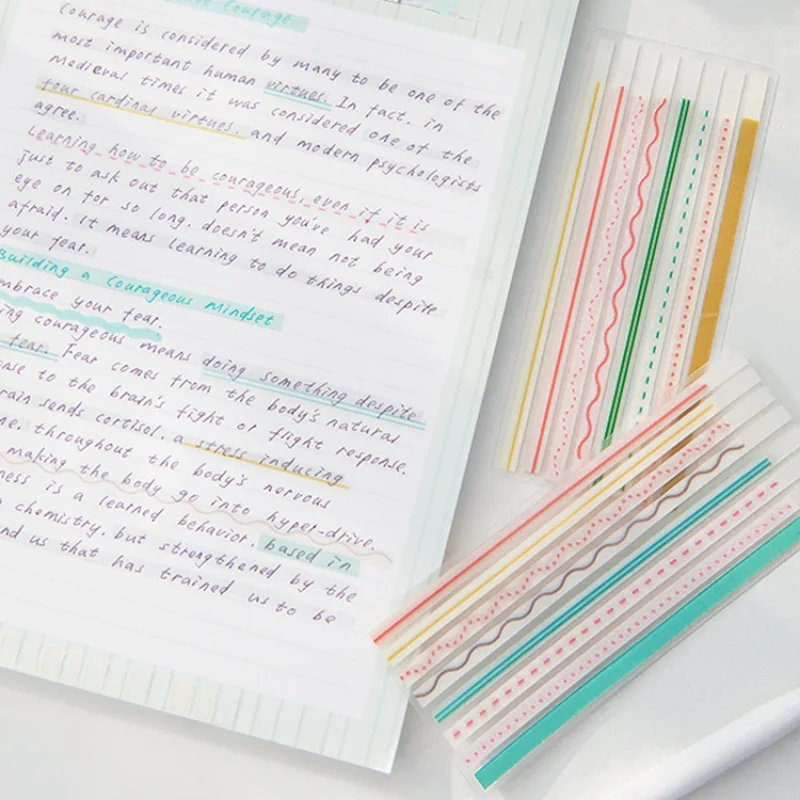 Courage.
Courage is considered by many to be one of the
most important human virtues. In fact, in
medieval times it was considered one of the
four cardinal virtues, and modern psychologists
agree.
Learning how to be courageous, even if it is
just to ask out that person you've had your
eye on for so long, doesn't mean not being
afraid. It means learning to do things despite
your fear.
Building a Courageous Mindset
mbrace your fear.
ing courageous means doing something despite
fear. Fear comes from the body's natural
nse to the brain's fight or flight response.
rain sends cortisol, a stress inducing
ne, throughout the body's nervous
making the body go into hyper-drive.
ness is a learned behavior, based in
chemistry, but strengthened by the
nd us that has trained us to be